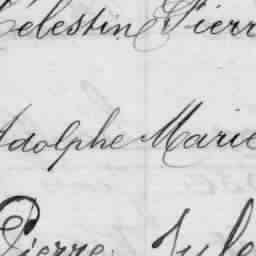 Célestin Pierr
Adolphe Marie
Pierre Jule